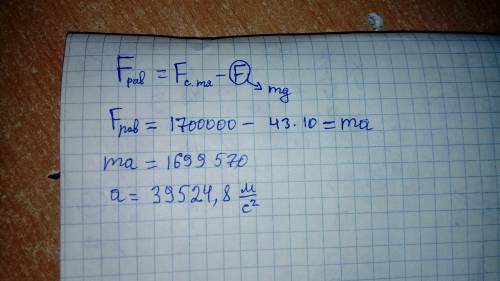 Fрав = Fс.тя - F → mg
Fрав = 1700000 - 43·10 = ma
ma = 1699570
a = 39524,8 м/с²